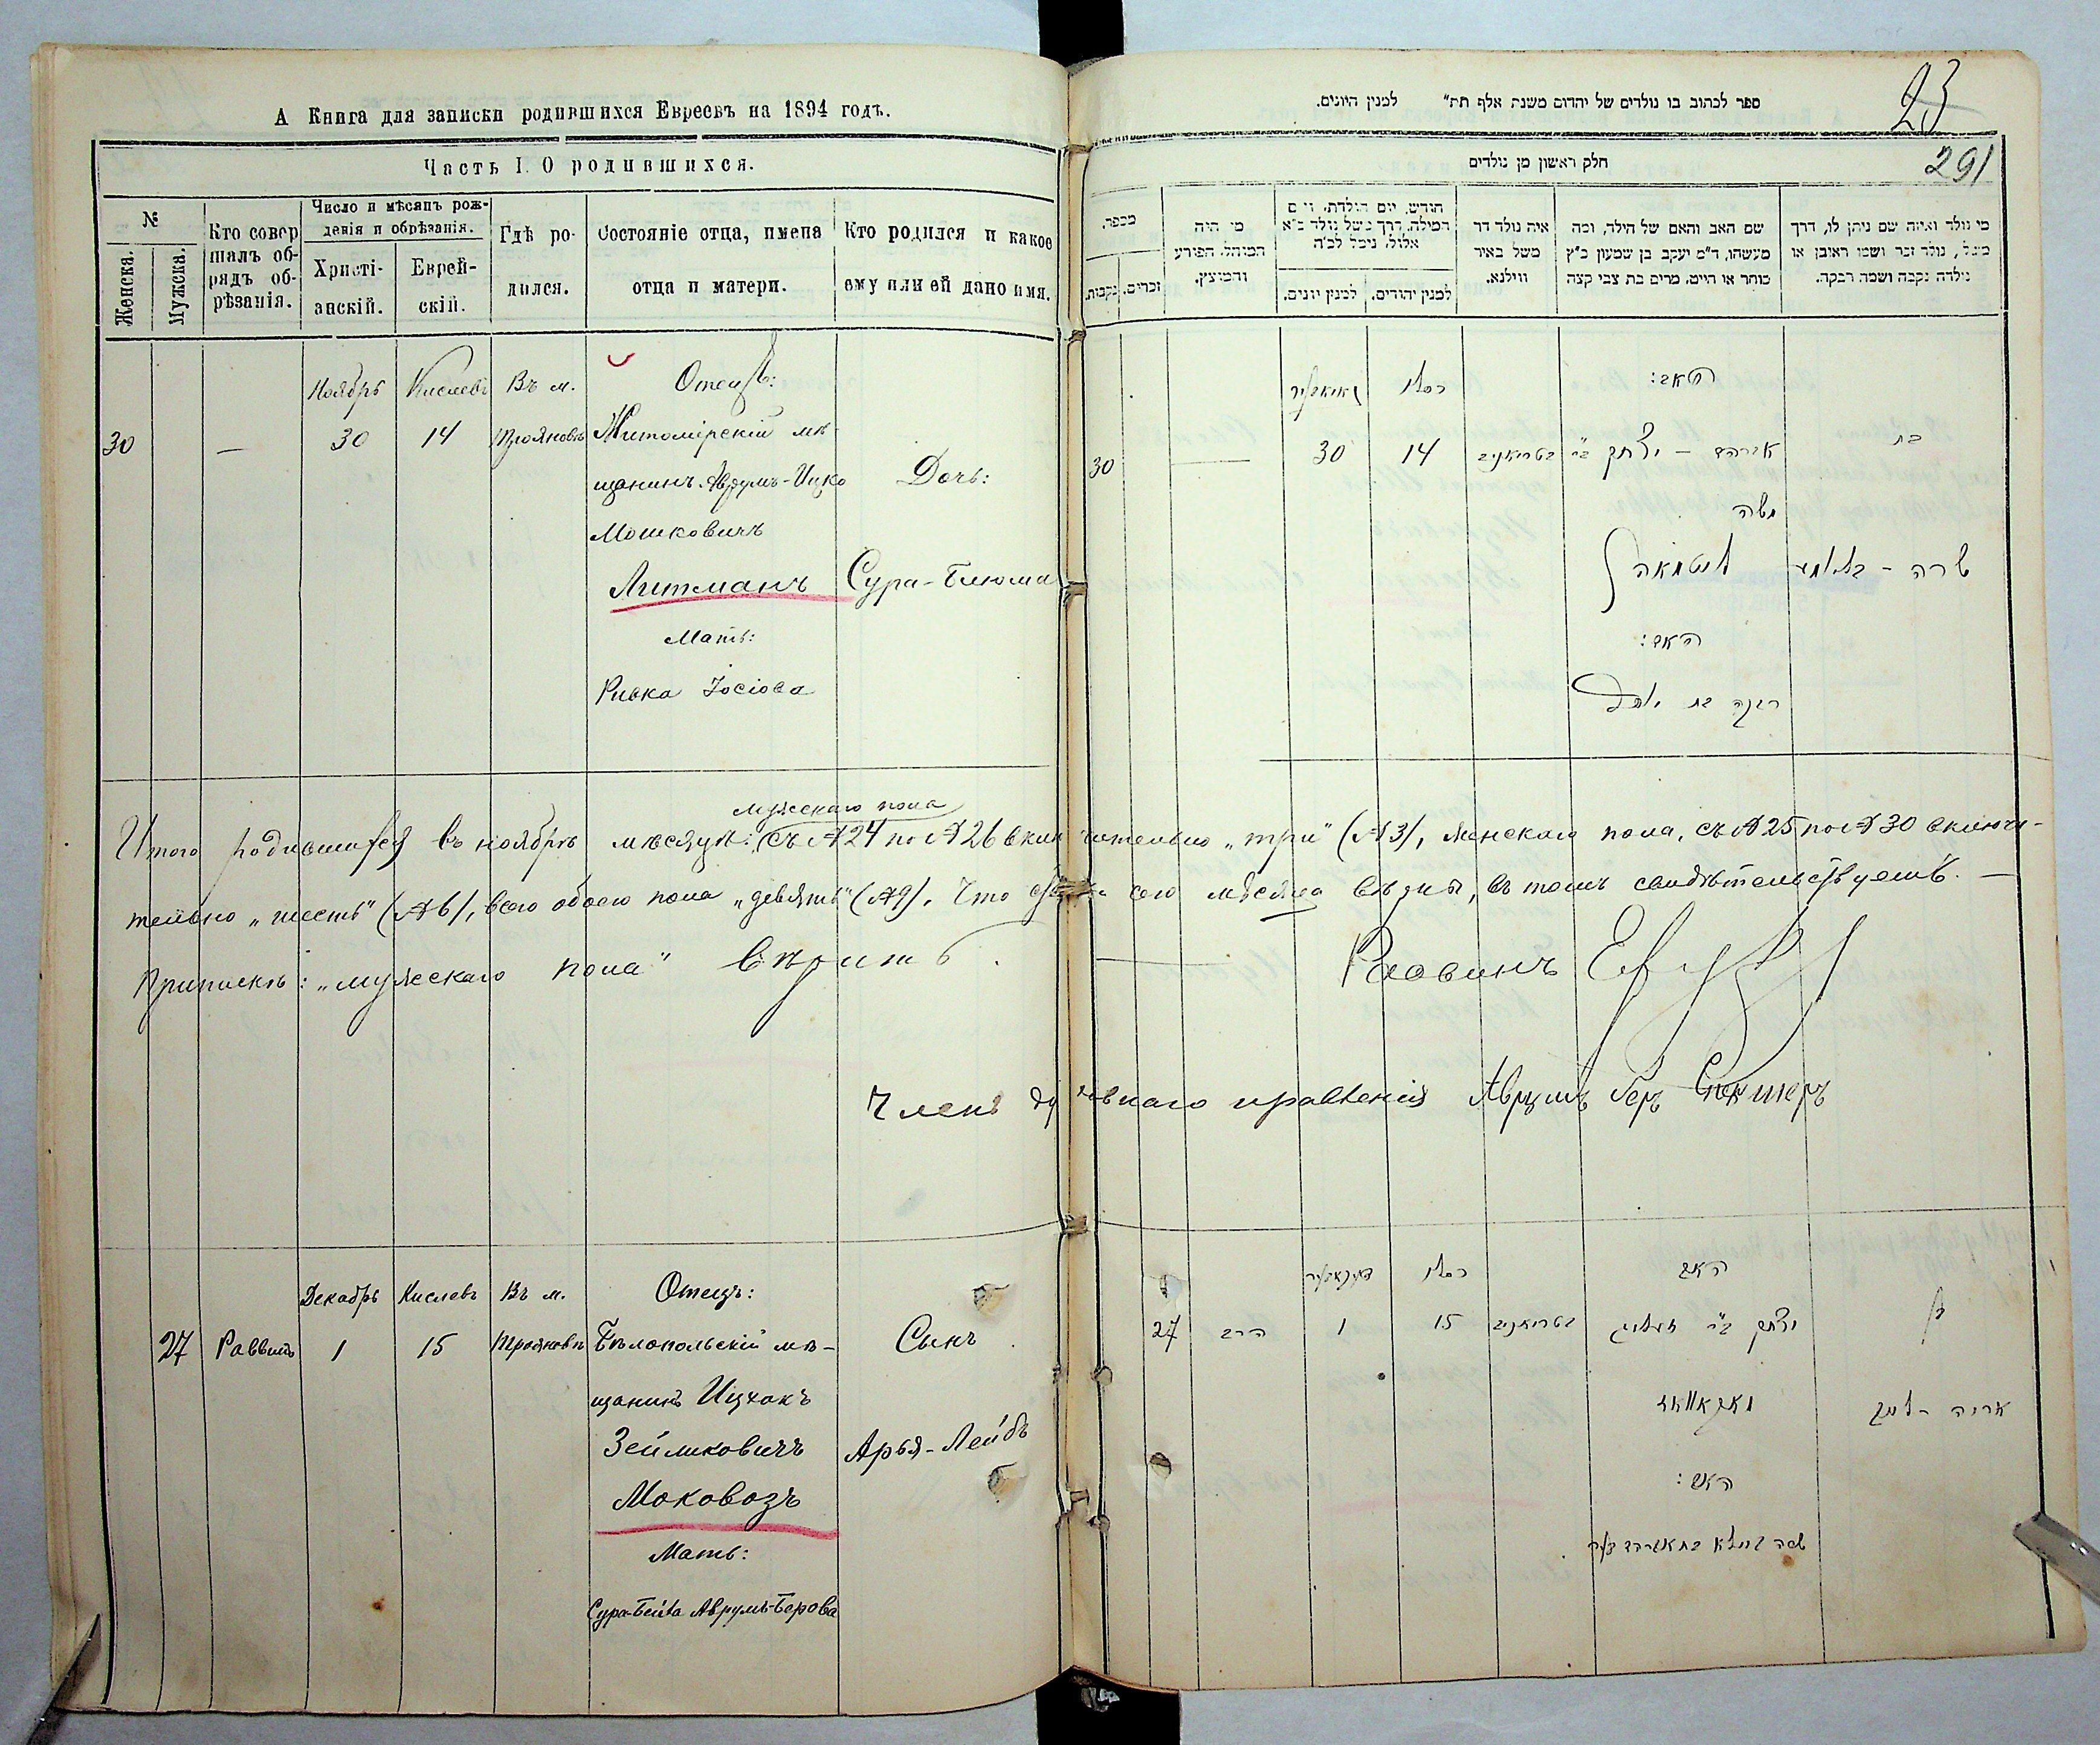 А Книга для записки родившихся Евреевъ на 1894 годъ.
Часть I. О родившихся.
№
Женска.
Мужска.
Кто совер
шалъ об-
рядъ об-
рѣзанія.
Число и мѣсяцъ рож-
денія и обрѣзанія.
Христі-
анскій.
Еврей-
скій.
Гдѣ ро-
дился.
Состояніе отца, имена
отца и матери.
Кто родился и какое
ему или ей дано имя.
30
—
Ноябрь
30
Кислевъ
14
Въ м.
Трояновѣ
Отецъ:
Житомірскій мѣ-
щанинъ Аврумъ-Ицко
Мошковичъ
Литманъ
Мать:
Ривка Іосіова
Дочь:
Сура-Блюма
ספר לכתוב בו נולדים של יהודים משנת אלף תת״ למנין היונים.
23
291
חלק ראשון מן נולדים
מי נולד ואיזה שם ניתן לו, דרך
משל, נולד זכר ושמו ראובן או
נולדה נקבה ושמה רבקה.
שם האב והאם של הילד, ומה
מעשהו, ד״מ יעקב בן שמעון כ״ץ
סוחר או חייט, מרים בת צבי קצב
איה נולד דר
משל באיר
ווילנא.
חודש, יום הולדת, ויום
המילה, דרך משל נולד כ״א
אלול, נימל לכ״ח
למנין יהודים.
למנין יונים.
מי היה
המוהל הפורע
והמוצץ.
מספר.
זכרים.
נקבות.
30
—
30
כסלו
14
האב:
אברהם - יצחק ב״ר
משה
ליטמאן
האם:
רבקה בת יוסף
בת
שרה - בלומע
мужскаго пола
Итого родившихся въ ноябрѣ мѣсяцѣ: съ №24 по №26 включительно „три“ (№3), женскаго пола, съ №25 по №30 включи-
тельно „шесть“ (№6), всего обоего пола „девять“ (№9). Что сего мѣсяца вѣрны, въ томъ свидѣтельствуемъ. —
Припискѣ: „мужескаго пола“ вѣрить.
Раввинъ
Членъ духовнаго правленія Аврумъ Беръ
27
Раввинъ
Декабрь
1
Кислевъ
15
Въ м.
Трояновѣ
Отецъ:
Бѣлопольскій мѣ-
щанинъ Ицхакъ
Зейликовичъ
Моковозъ
Мать:
Сура-Бейла Аврумъ-Берова
Сынъ
Арья-Лейбъ
27
הרב
1
כסלו
15
האב
יצחק ב״ר זעליג
מאקאוואז
האם:
בן
אריה - לייב